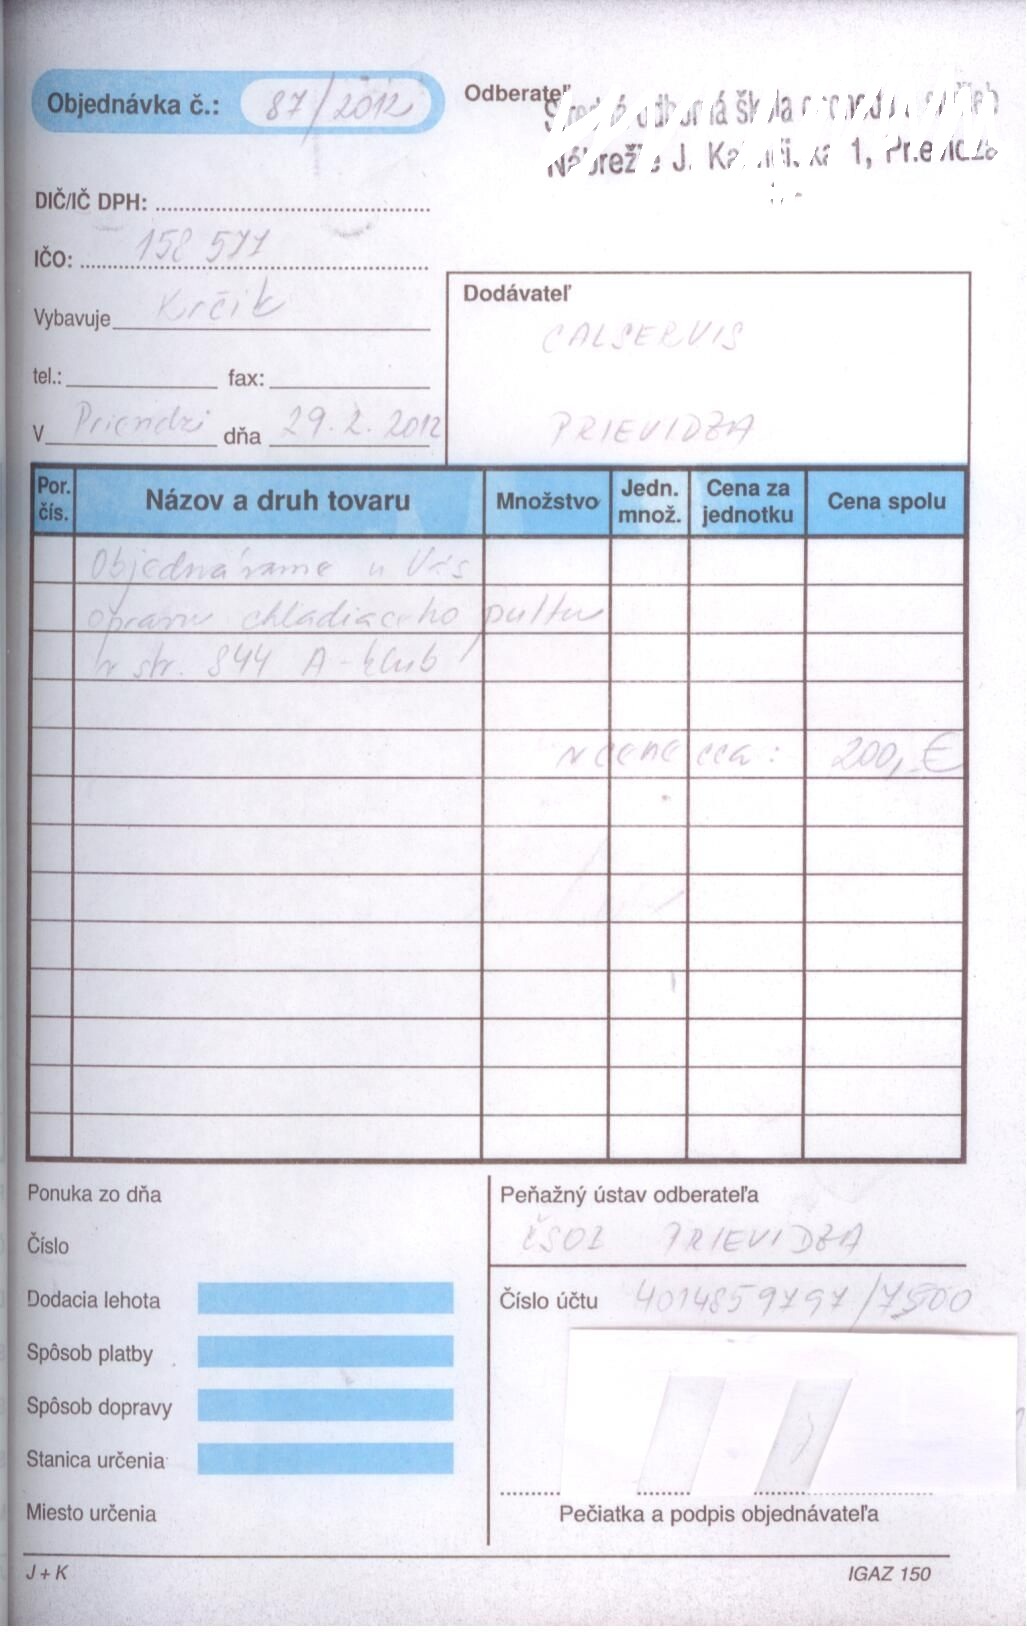 Objednávka č.: 87/2012
Odberateľ
Stredná odborná škola obchodu a služieb
Nábrežie J. Kalinčiaka 1, Prievidza
DIČ/IČ DPH:
IČO: 158 577
Vybavuje Krčik
Dodávateľ
CALSERVIS
tel.: fax:
PRIEVIDZA
V Prievidzi dňa 29.2.2012
Por. čís. Názov a druh tovaru Množstvo Jedn. množ. Cena za jednotku Cena spolu
Objednávame u Vás
opravu chladiaceho pultu
v str. 844 A-klub
v cene cca: 200,€
Ponuka zo dňa
Peňažný ústav odberateľa
Číslo
ČSOB PRIEVIDZA
Dodacia lehota
Číslo účtu 4014859797/7500
Spôsob platby
Spôsob dopravy
Stanica určenia
Miesto určenia
Pečiatka a podpis objednávateľa
J + K
IGAZ 150